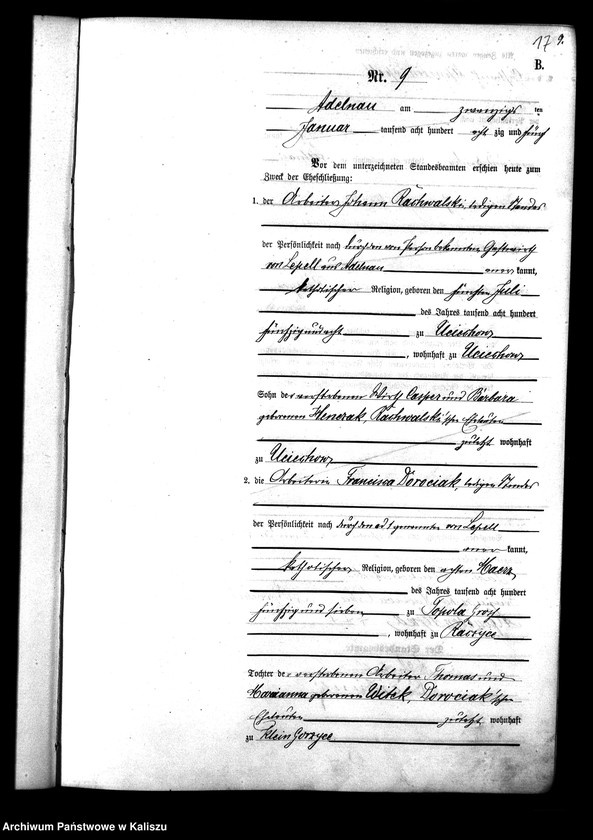 17 9.
B.
Nr. 9
Adelnau am zwanzigs ten
Januar tausend acht hundert acht zig und fünf
Vor dem unterzeichneten Standesbeamten erschien heute zum
Zweck der Eheschließung:
1. der Arbeiter Johann Rachwalski, ledigen Standes
der Persönlichkeit nach durch den von Person bekannten Gastwirth
von Lepell aus Adelnau aner kannt,
katholischer Religion, geboren den fünften Juli
des Jahres tausend acht hundert
fünfzig und acht zu Uciechow
, wohnhaft zu Uciechow
Sohn der verstorbenen Wirth Casper und Barbara
geborenen Rachwalski'schen Eheleuten
zuletzt wohnhaft
zu Uciechow
2. die Arbeiterin Francisca Dorociak, ledigen Standes
der Persönlichkeit nach durch den ad 1 genannten von Lepell
aner kannt,
katholischer Religion, geboren den achten Maerz
des Jahres tausend acht hundert
fünfzig und sieben zu Topola Groß
, wohnhaft zu
Tochter der verstorbenen Arbeiter Thomas und
Marianna geborenen Witek, Dorociak'schen
Eheleuten zuletzt wohnhaft
zu Klein Gorzyce
Archiwum Państwowe w Kaliszu